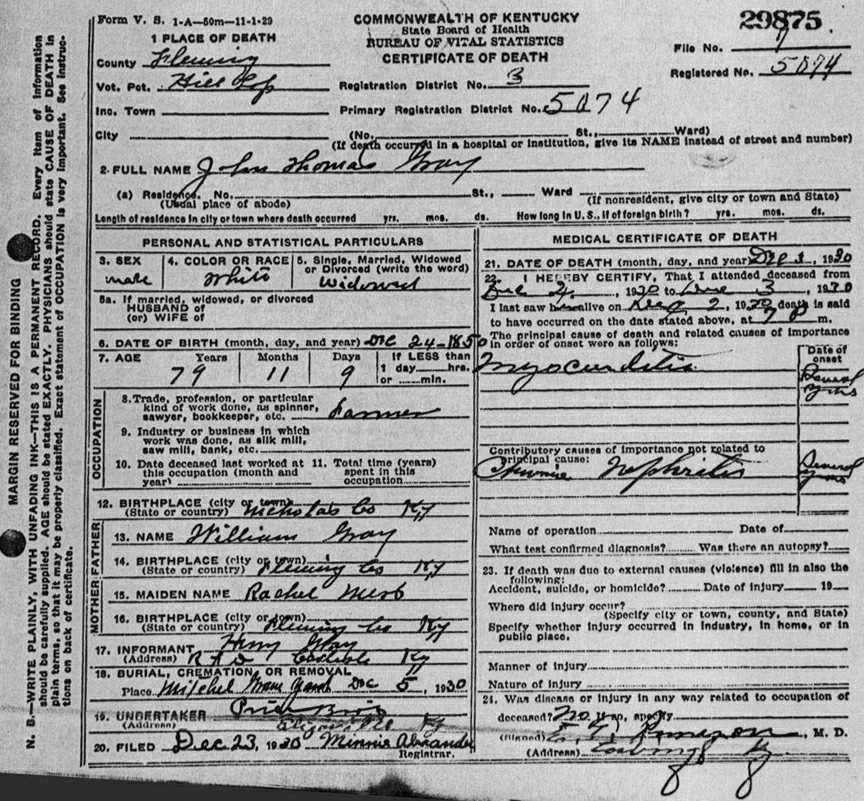 Form V. S. 1-A—50m—11-1-29
COMMONWEALTH OF KENTUCKY
State Board of Health
BUREAU OF VITAL STATISTICS
CERTIFICATE OF DEATH
29875
File No. 7
Registered No. 5874
1 PLACE OF DEATH
County Fleming
Vot. Pct. Hill Top
Registration District No. 3
Inc. Town
Primary Registration District No. 5874
City (No. St., Ward)
(If death occurred in a hospital or institution, give its NAME instead of street and number)
2. FULL NAME John Thomas Gray
(a) Residence. No. St., Ward
(Usual place of abode) (If nonresident, give city or town and State)
Length of residence in city or town where death occurred yrs. mos. ds. How long in U. S., if of foreign birth? yrs. mos. ds.
PERSONAL AND STATISTICAL PARTICULARS
3. SEX 4. COLOR OR RACE 5. Single, Married, Widowed or Divorced (write the word)
male White Widowed
5a. If married, widowed, or divorced
HUSBAND of
(or) WIFE of
6. DATE OF BIRTH (month, day, and year) Dec 24-1850
7. AGE Years Months Days If LESS than
1 day hrs.
or min.
79 11 9
OCCUPATION
8. Trade, profession, or particular
kind of work done, as spinner,
sawyer, bookkeeper, etc. Farmer
9. Industry or business in which
work was done, as silk mill,
saw mill, bank, etc.
10. Date deceased last worked at
this occupation (month and
year)
11. Total time (years)
spent in this
occupation
12. BIRTHPLACE (city or town)
(State or country) Nicholas Co Ky
FATHER
13. NAME William Gray
14. BIRTHPLACE (city or town)
(State or country) Fleming Co Ky
MOTHER
15. MAIDEN NAME Rachel
16. BIRTHPLACE (city or town)
(State or country) Fleming Co Ky
17. INFORMANT Gray
(Address) Carlisle Ky
18. BURIAL, CREMATION, OR REMOVAL
Place Mitchel Dec 5, 1930
19. UNDERTAKER Price Bros
(Address) Ky
20. FILED Dec 23, 1930 Minnie Alexander
Registrar.
MEDICAL CERTIFICATE OF DEATH
21. DATE OF DEATH (month, day, and year) Dec 3, 1930
22. I HEREBY CERTIFY, That I attended deceased from
Dec 2, 1930 to Dec 3, 1930
I last saw him alive on Dec 2, 1930 death is said
to have occurred on the date stated above, at 7 P m.
The principal cause of death and related causes of importance
in order of onset were as follows:
Date of
onset
Myocarditis Several yrs
Contributory causes of importance not related to
principal cause:
Chronic Nephritis Several yrs
Name of operation Date of
What test confirmed diagnosis? Was there an autopsy?
23. If death was due to external causes (violence) fill in also the
following:
Accident, suicide, or homicide? Date of injury 19
Where did injury occur?
(Specify city or town, county, and State)
Specify whether injury occurred in industry, in home, or in
public place.
Manner of injury
Nature of injury
24. Was disease or injury in any way related to occupation of
deceased? No If so, specify
(Signed) , M. D.
(Address) Ewing Ky
MARGIN RESERVED FOR BINDING
N. B.—WRITE PLAINLY, WITH UNFADING INK—THIS IS A PERMANENT RECORD. Every item of information
should be carefully supplied. AGE should be stated EXACTLY. PHYSICIANS should state CAUSE OF DEATH in
plain terms, so that it may be properly classified. Exact statement of OCCUPATION is very important. See instruc-
tions on back of certificate.